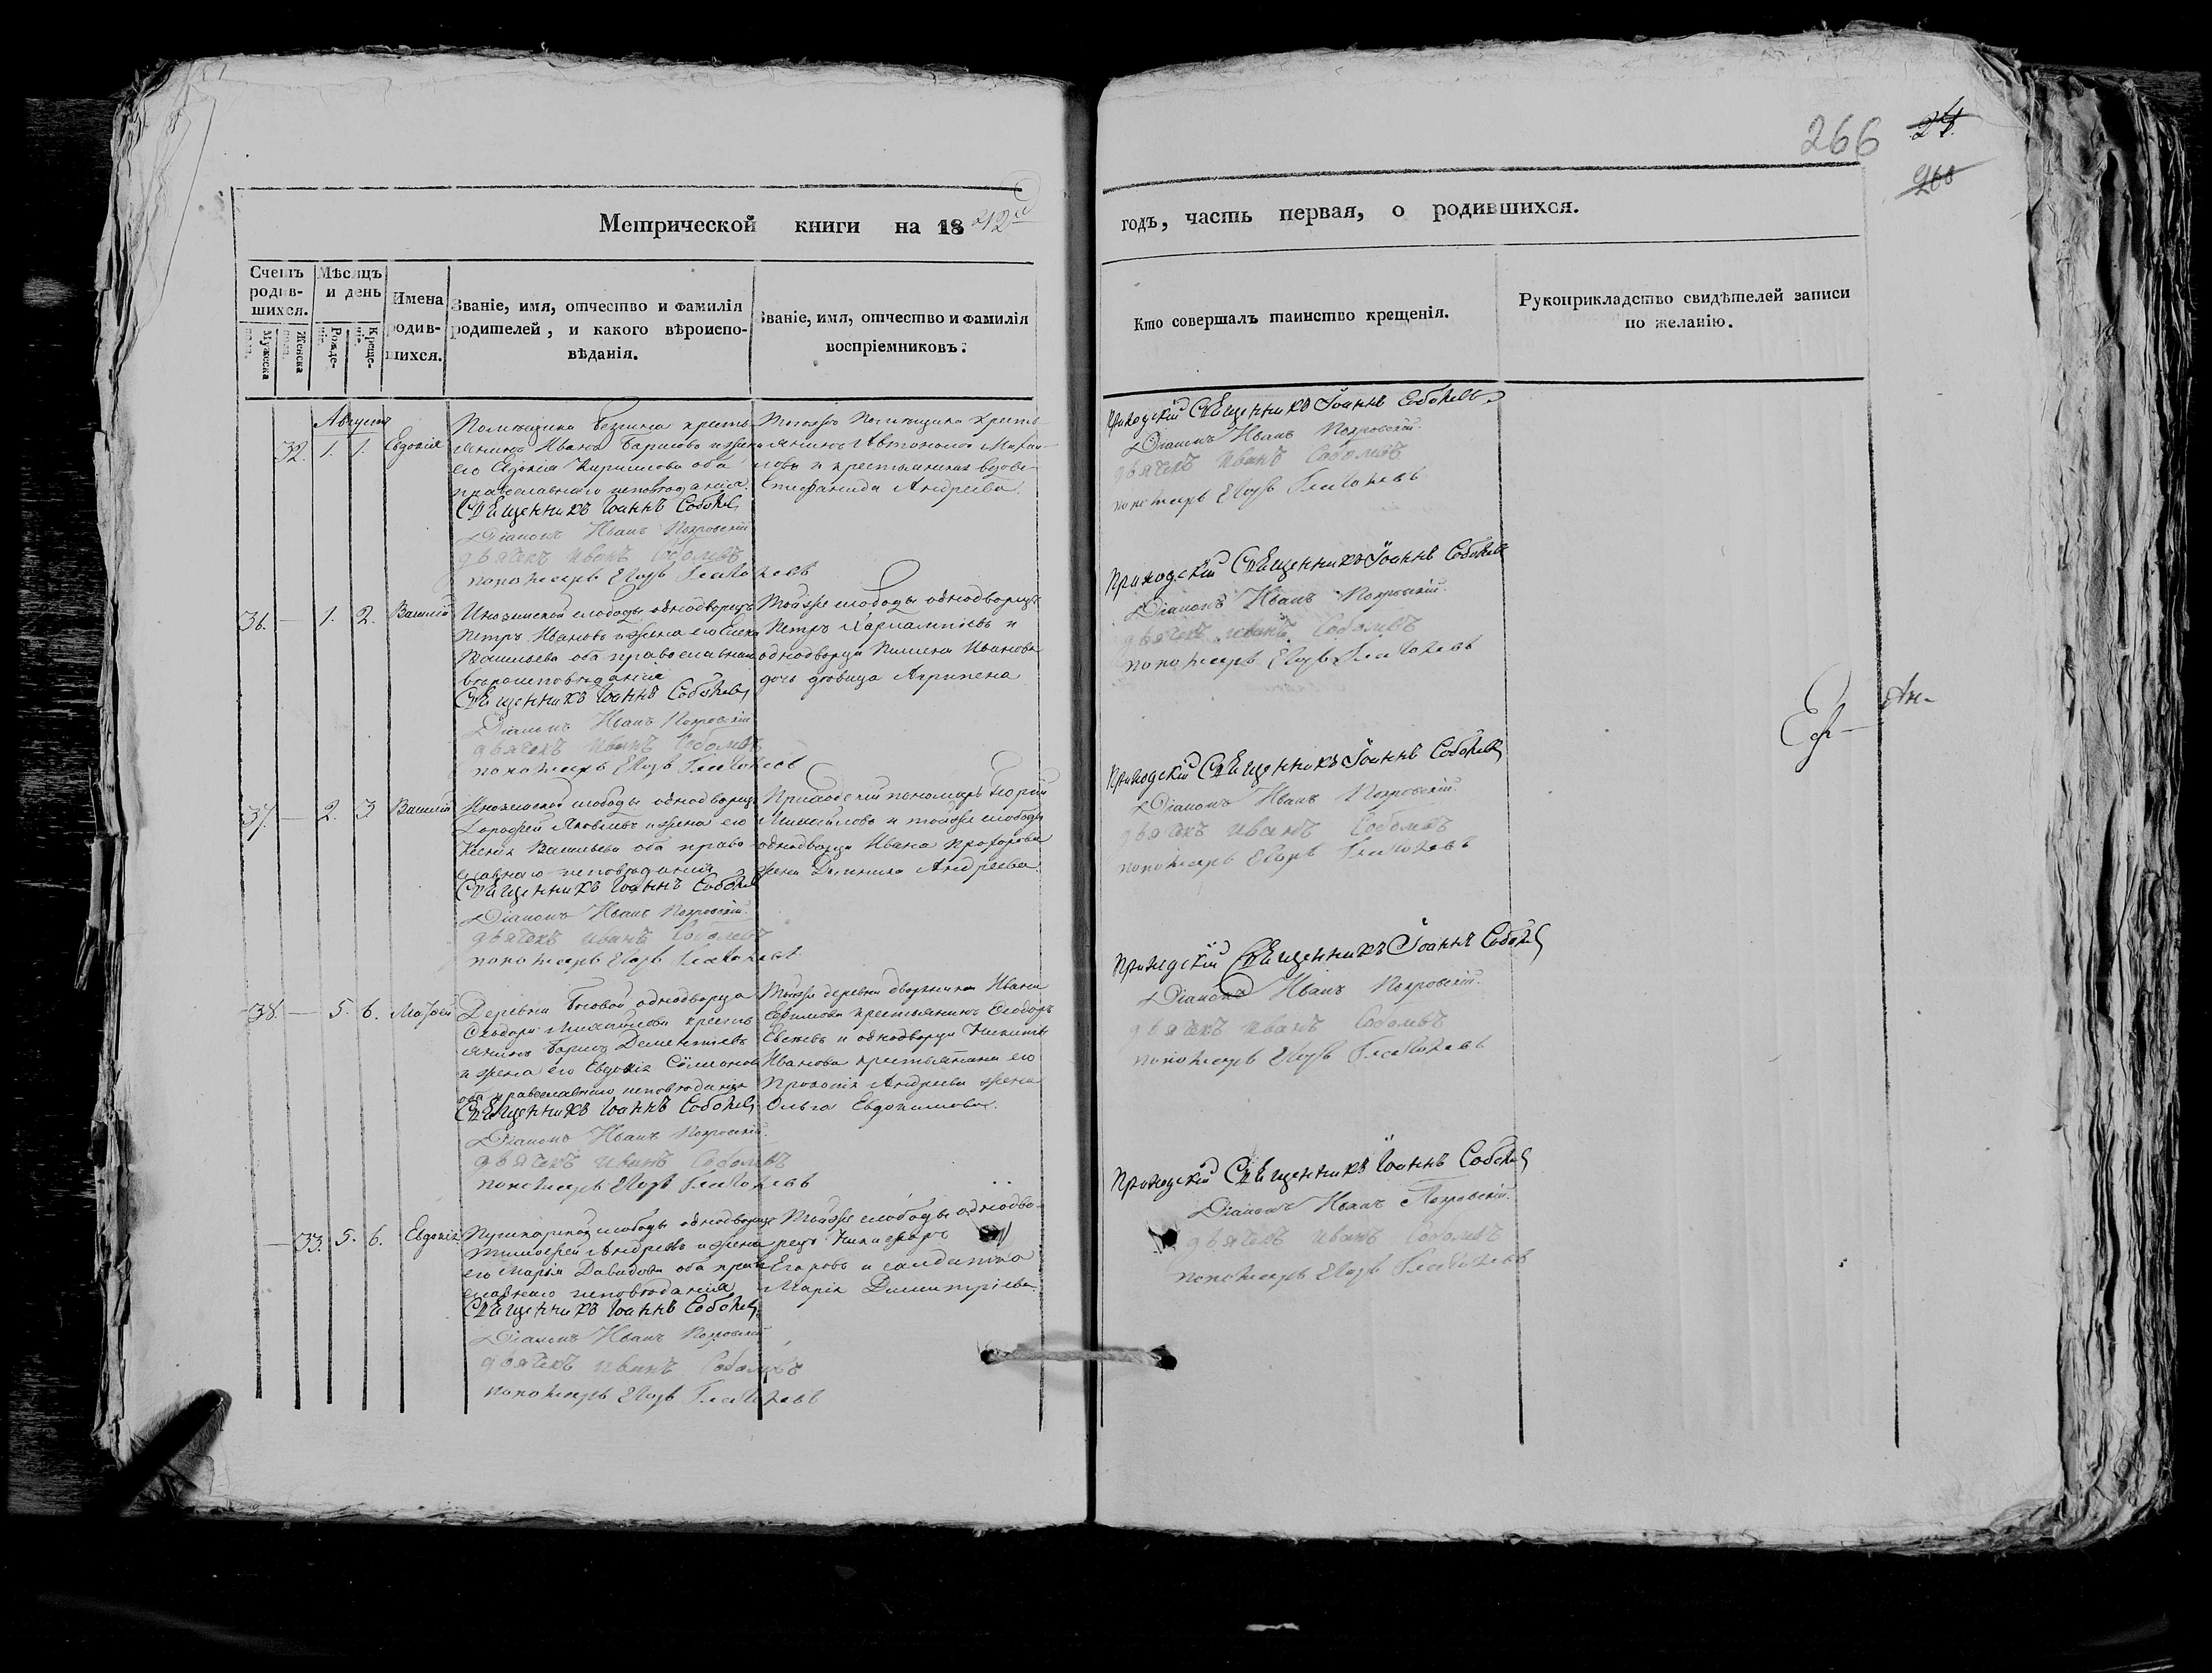 266 24
268
Метрической книги на 1842й
годъ, часть первая, о родившихся.
Счетъ родив-шихся.
Мужеска пола.
Женска пола.
Мѣсяцъ и день
Рожде-нія.
Креще-нія.
Имена родив-шихся.
Званіе, имя, отчество и фамилія родителей, и какого вѣроиспо-вѣданія.
Званіе, имя, отчество и фамилія воспріемниковъ.
Кто совершалъ таинство крещенія.
Рукоприкладство свидѣтелей записи по желанію.
Августъ
32. 1. 1. Евдокія
Помѣщика кресть-
янинъ Иванъ Борисовъ и жена
его Евдокія Кирилова оба
православнаго исповѣданія.
Священникъ Іоаннъ Соболев
Діаконъ Иванъ Покровскій
дьячекъ иванъ Соболевъ
пономарь Егоръ
Тогоже Помѣщика кресть-
янинъ Автономъ Михаи-
лова и крестьянская вдова
Стефанида Андреева.
Приходскій Священникъ Іоаннъ Соболев
Діаконъ Иванъ Покровскій.
дьячекъ иванъ Соболевъ
пономарь Егоръ
36. — 1. 2. Василій
слободы однодворецъ
Петръ Ивановъ и жена его Елена
Васильева оба православнаго
вѣроисповѣданія
Священникъ Іоаннъ Соболев
Діаконъ Иванъ Покровскій
дьячекъ иванъ Соболевъ
пономарь Егоръ
Тойже слободы однодворецъ
Петръ Харлампіевъ и
однодворца Иванова
дочь дѣвица Агрипена
Приходскій Священникъ Іоаннъ Соболев
Діаконъ Иванъ Покровскій.
дьячекъ иванъ Соболевъ
пономарь Егоръ
Еф — Ан-
37. — 2. 3 Василій
слободы однодворецъ
Дорофей Яковлевъ и жена его
Ксенія Васильева оба право-
славнаго исповѣданія
Священникъ Іоаннъ Соболев
Діаконъ Иванъ Покровскій.
дьячекъ иванъ Соболевъ
пономарь Егоръ
Приходскій пономарь Георгій
Михайловъ и тойже слободы
однодворца Ивана Прохорова
жена Домника Андреева.
Приходскій Священникъ Іоаннъ Соболев
Діаконъ Иванъ Покровскій.
дьячекъ иванъ Соболевъ
пономарь Егоръ
38. — 5. 6. Моѵсей
Деревни однодворца
Ѳеодора Михайлова кресть-
янинъ Борисъ Дементіевъ
и жена его Евдокія Симонова
оба православнаго исповѣданія
Священникъ Іоаннъ Соболев
Діаконъ Иванъ Покровскій.
дьячекъ иванъ Соболевъ
пономарь Егоръ
Тойже деревни дворянина Ивана
Ефимова крестьянинъ Ѳеодоръ
Евсеевъ и однодворца Никиты
Иванова крестьянина его
Андреева жена
Ольга Евдокимова.
Приходскій Священникъ Іоаннъ Соболев
Діаконъ Иванъ Покровскій.
дьячекъ иванъ Соболевъ
пономарь Егоръ
— 33. 5. 6. Евдокія
Пушкарской слободы однодворецъ
Тимофей Андреевъ и жена
его Марѳа Давидова оба право-
славнаго исповѣданія
Священникъ Іоаннъ Соболев
Діаконъ Иванъ Покровскій
дьячекъ иванъ Соболевъ
пономарь Егоръ
Тойже слободы однодво-
рецъ Никифоръ
Егоровъ и солдатка
Марія Димитріева.
Приходскій Священникъ Іоаннъ Соболев
Діаконъ Иванъ Покровскій.
дьячекъ иванъ Соболевъ
пономарь Егоръ